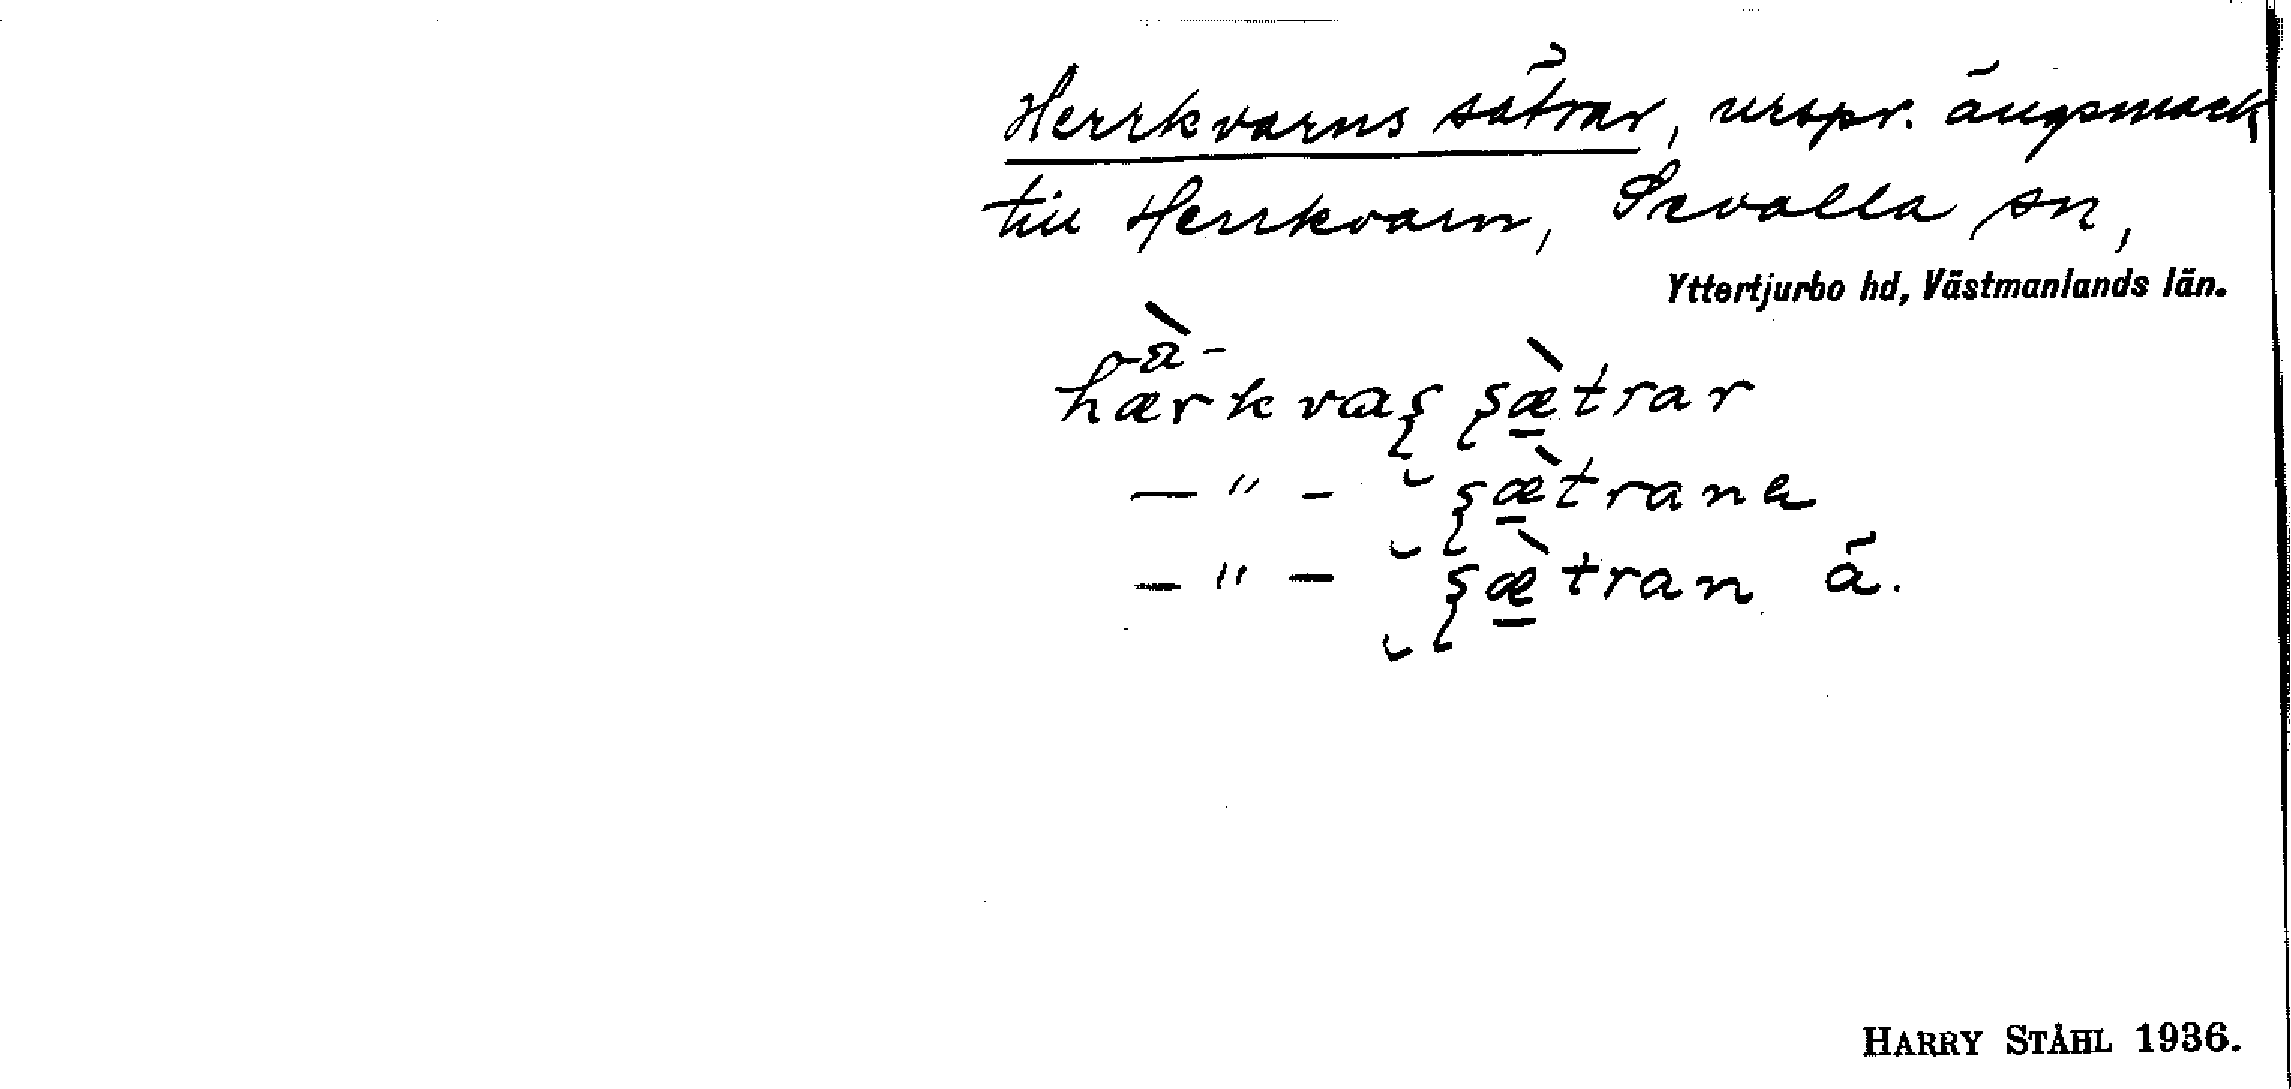 Herrkvarns sätrar, urspr. ängsmark
till Herrkvarn, Sevalla sn,
Yttertjurbo hd, Västmanlands län.
-à-
hærkvaʂ ʂæ̀trar
— " – ʂæ̀trana
– " – ʂæ̀tran ä.
HARRY STÅHL 1936.